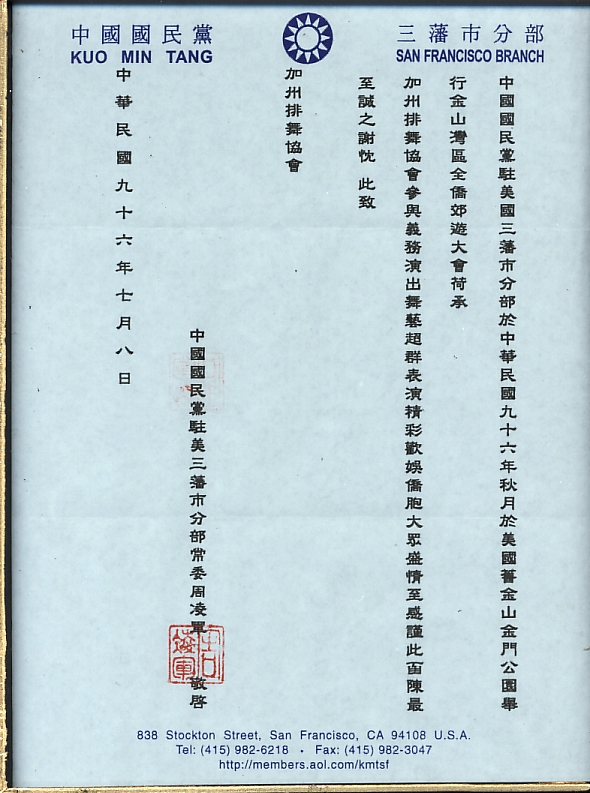 中國國民黨
KUO MIN TANG
三藩市分部
SAN FRANCISCO BRANCH
中國國民黨駐美國三藩市分部於中華民國九十六年秋月於美國舊金山金門公園舉
行金山灣區全僑郊遊大會荷承
加州排舞協會參與義務演出舞藝超群表演精彩歡娛僑胞大眾盛情至感謹此函陳最
至誠之謝忱 此致
加州排舞協會
中國國民黨駐美三藩市分部常委周凌軍 敬啓
周凌軍
中華民國九十六年七月八日
838 Stockton Street, San Francisco, CA 94108 U.S.A.
Tel: (415) 982-6218 • Fax: (415) 982-3047
http://members.aol.com/kmtsf